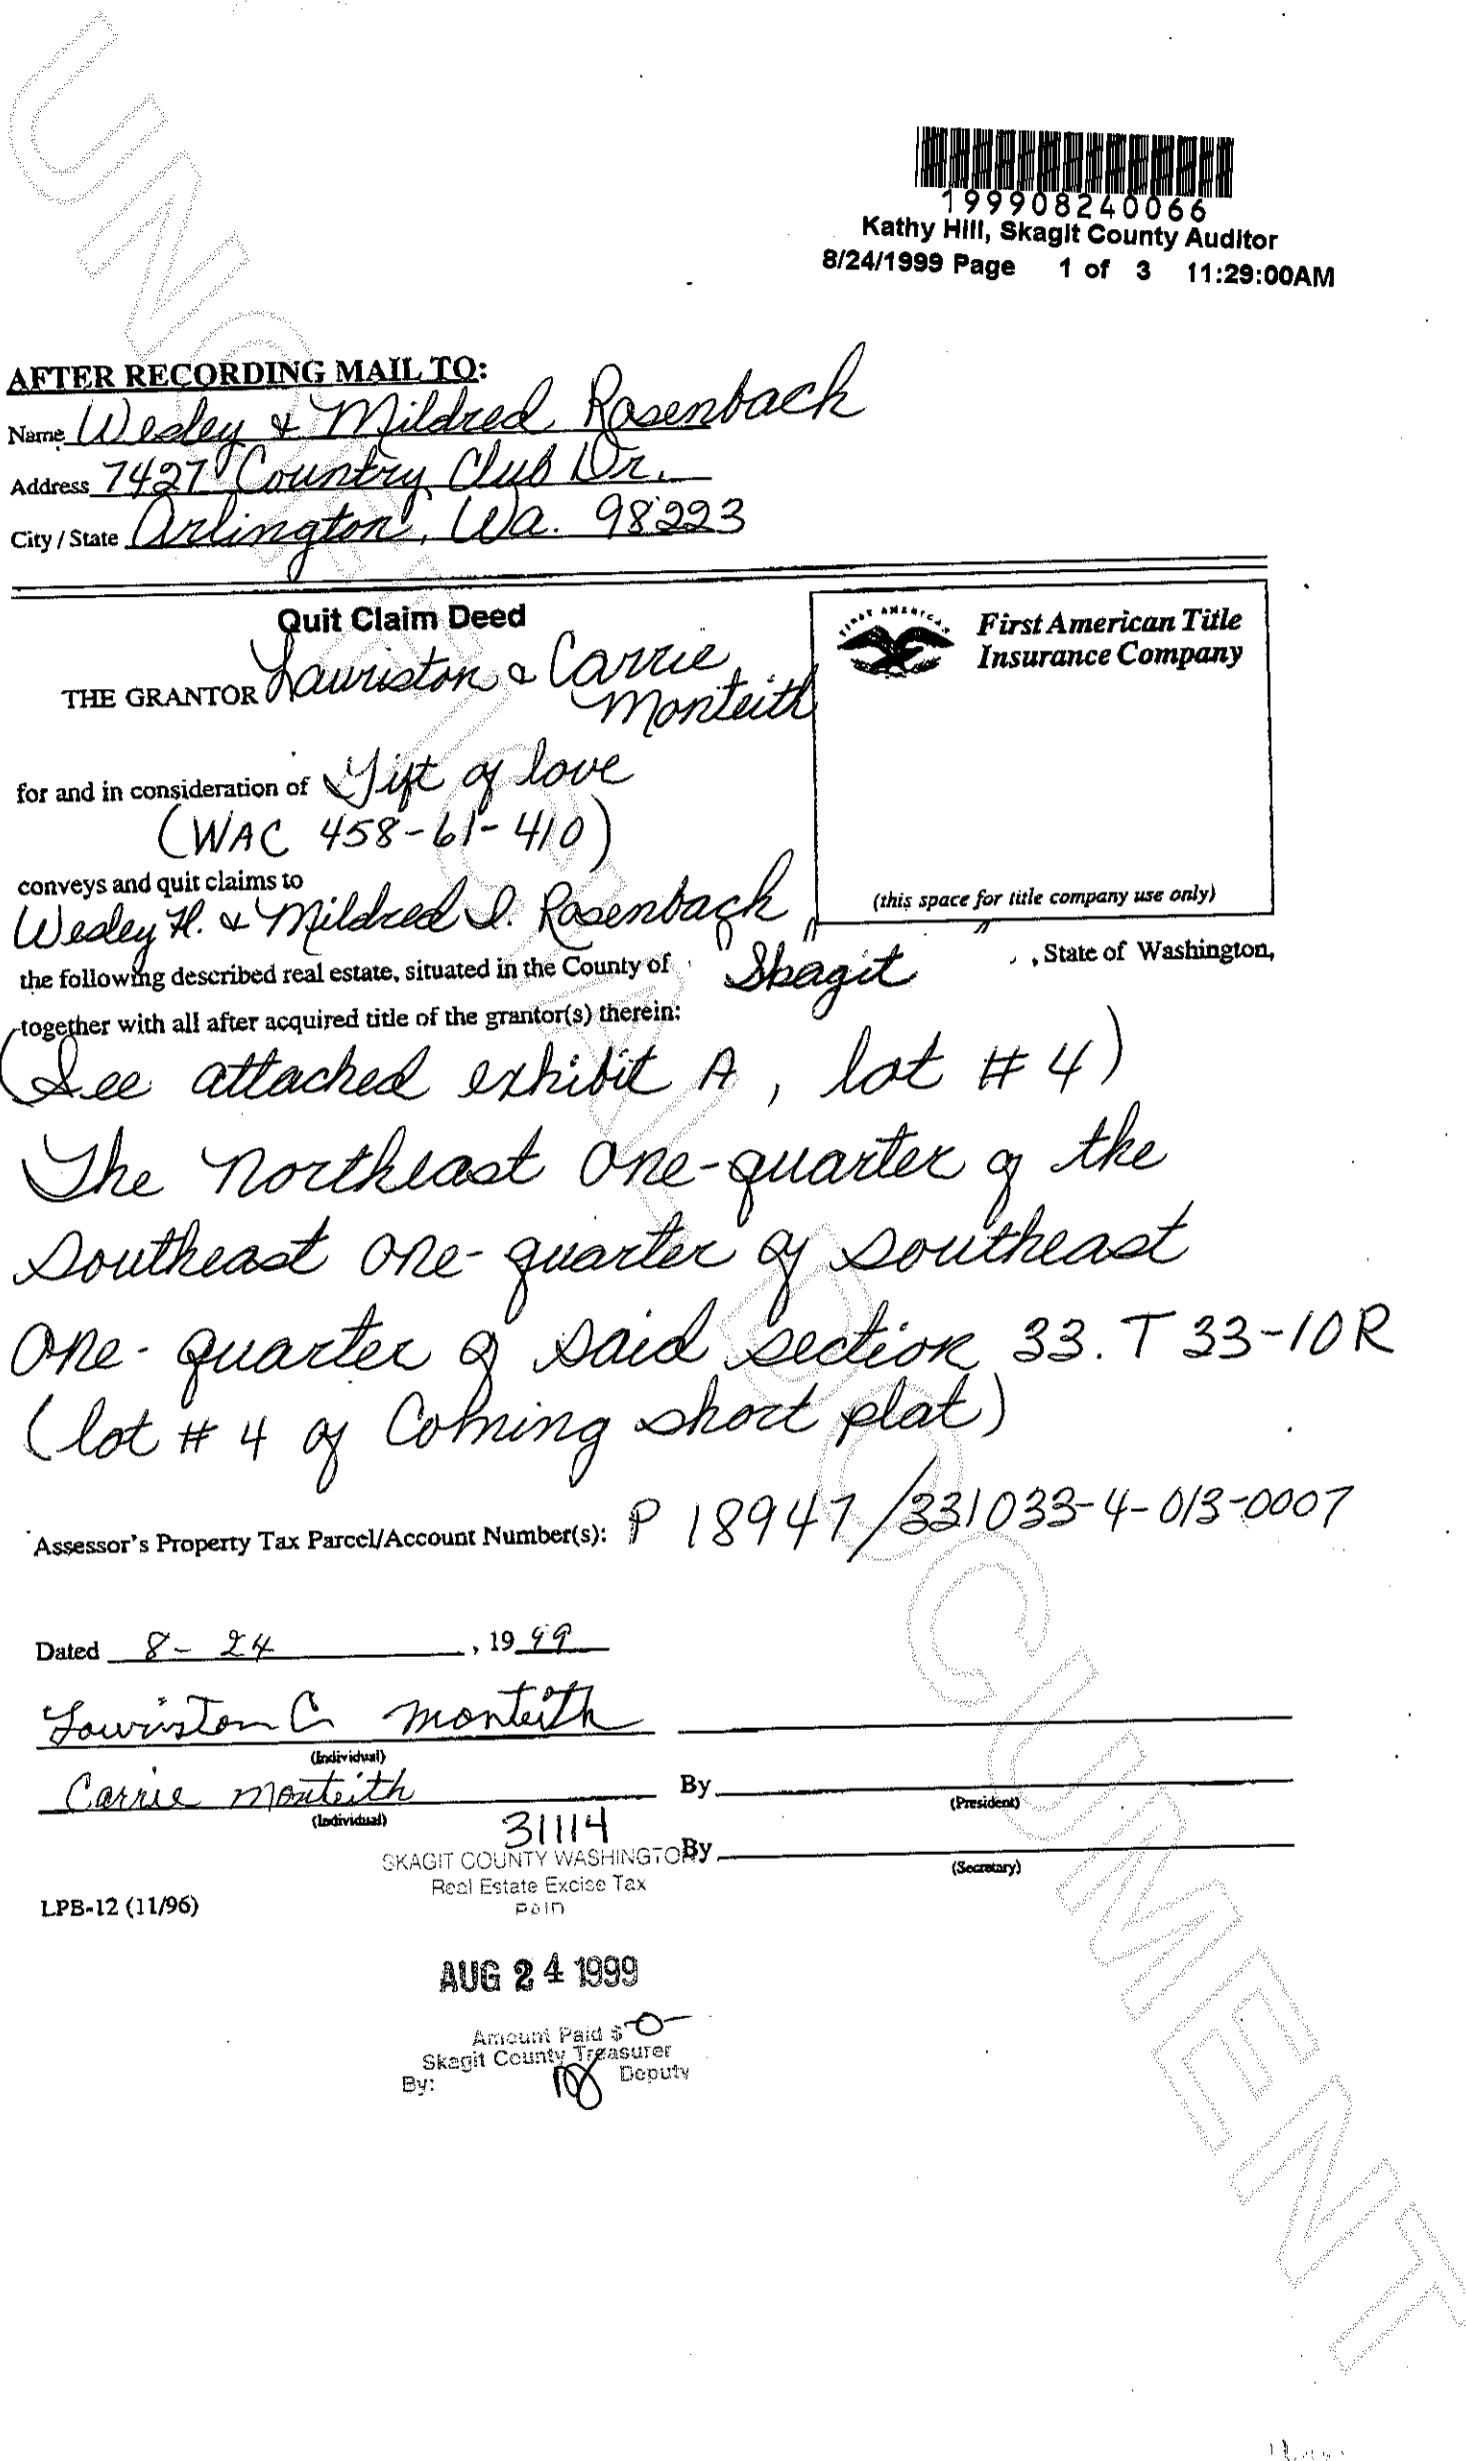 199908240066
Kathy Hill, Skagit County Auditor
8/24/1999 Page 1 of 3 11:29:00AM
AFTER RECORDING MAIL TO:
Name Wesley & Mildred Rosenbach
Address 7427 Country Club Dr.
City / State Arlington, Wa. 98223
Quit Claim Deed
THE GRANTOR Lauriston & Carrie
Monteith
FIRST AMERICAN
First American Title
Insurance Company
(this space for title company use only)
for and in consideration of Gift of love
(WAC 458-61-410)
conveys and quit claims to
Wesley H. & Mildred I. Rosenbach
the following described real estate, situated in the County of "Skagit" , State of Washington,
together with all after acquired title of the grantor(s) therein:
(See attached exhibit A, lot # 4)
The Northeast one-quarter of the
Southeast one-quarter of Southeast
one-quarter of said section 33. T 33-10R
(lot # 4 of Coming short plat)
Assessor's Property Tax Parcel/Account Number(s): P 18947/331033-4-013-0007
Dated 8-24, 1999
Lauriston C Monteith
(Individual)
Carrie Monteith
(Individual)
By
(President)
By
(Secretary)
31114
SKAGIT COUNTY WASHINGTON
Real Estate Excise Tax
PAID
LPB-12 (11/96)
AUG 24 1999
Amount Paid $ 0
Skagit County Treasurer
By: Deputy
UNOFFICIAL DOCUMENT